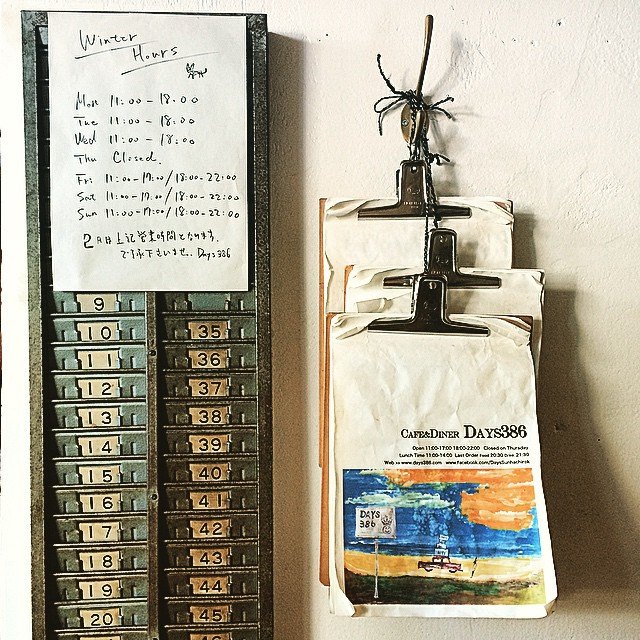 Winter
Hours
Mon 11:00 - 18:00
Tue 11:00 - 18:00
Wed 11:00 - 18:00
Thu Closed.
Fri 11:00-17:00/18:00-22:00
Sat 11:00-17:00/18:00-22:00
Sun 11:00-17:00/18:00-22:00
2月は上記営業時間となります。
ご了承下さいませ. Days386
9
10
11
12
13
14
15
16
17
18
19
20
35
36
37
38
39
40
41
42
43
44
45
46
CAFE&DINER DAYS386
Open 11:00-17:00 18:00-22:00 Closed on Thursday
Lunch Time 11:00-14:00 Last Order Food 20:30 Drink 21:30
Web www.days386.com www.facebook.com/DaysSunhachirok
DAYS
386